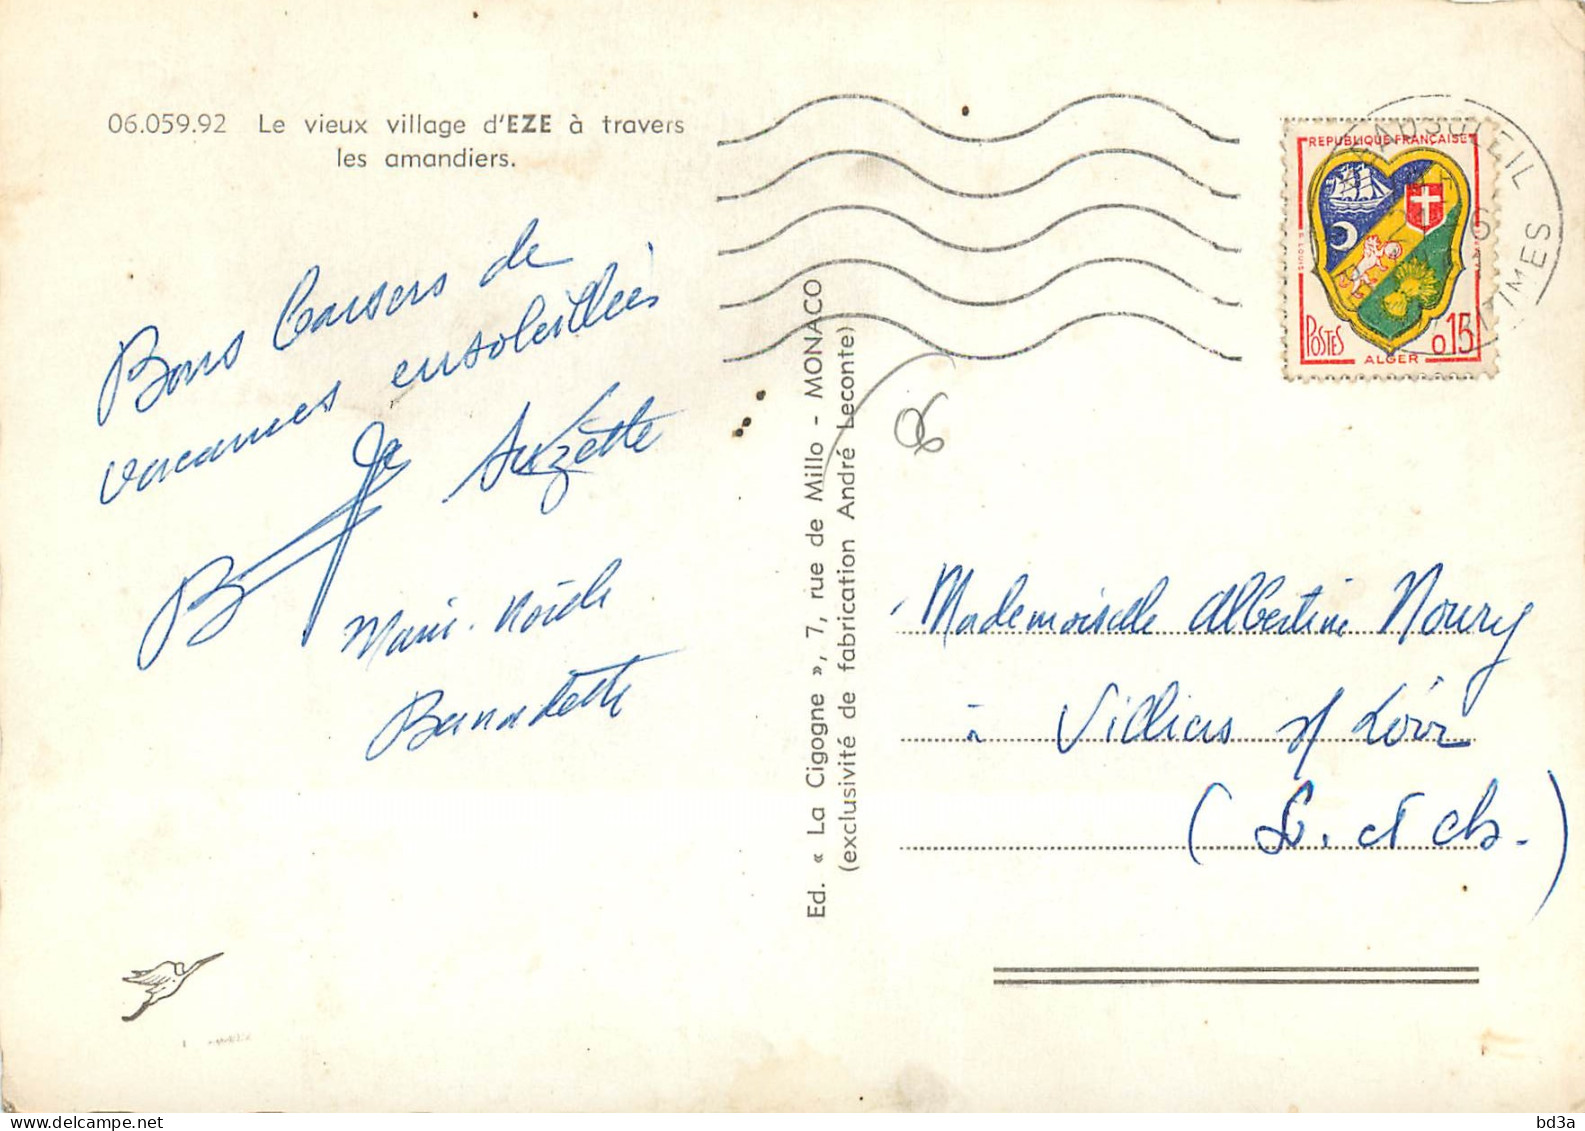 06.059.92 Le vieux village d'EZE à travers
les amandiers.
Bons baisers de
vacances ensoleillées
Suzette
B
Marie-Noële
Bernadette
Ed. « La Cigogne », 7, rue de Millo - MONACO
(exclusivité de fabrication André Leconte)
REPUBLIQUE FRANÇAISE
POSTES
ALGER
0,15
BEAUSOLEIL
Mademoiselle Albertine Noury
à Villiers s/ Loir
(L. et Ch.)
bd3a